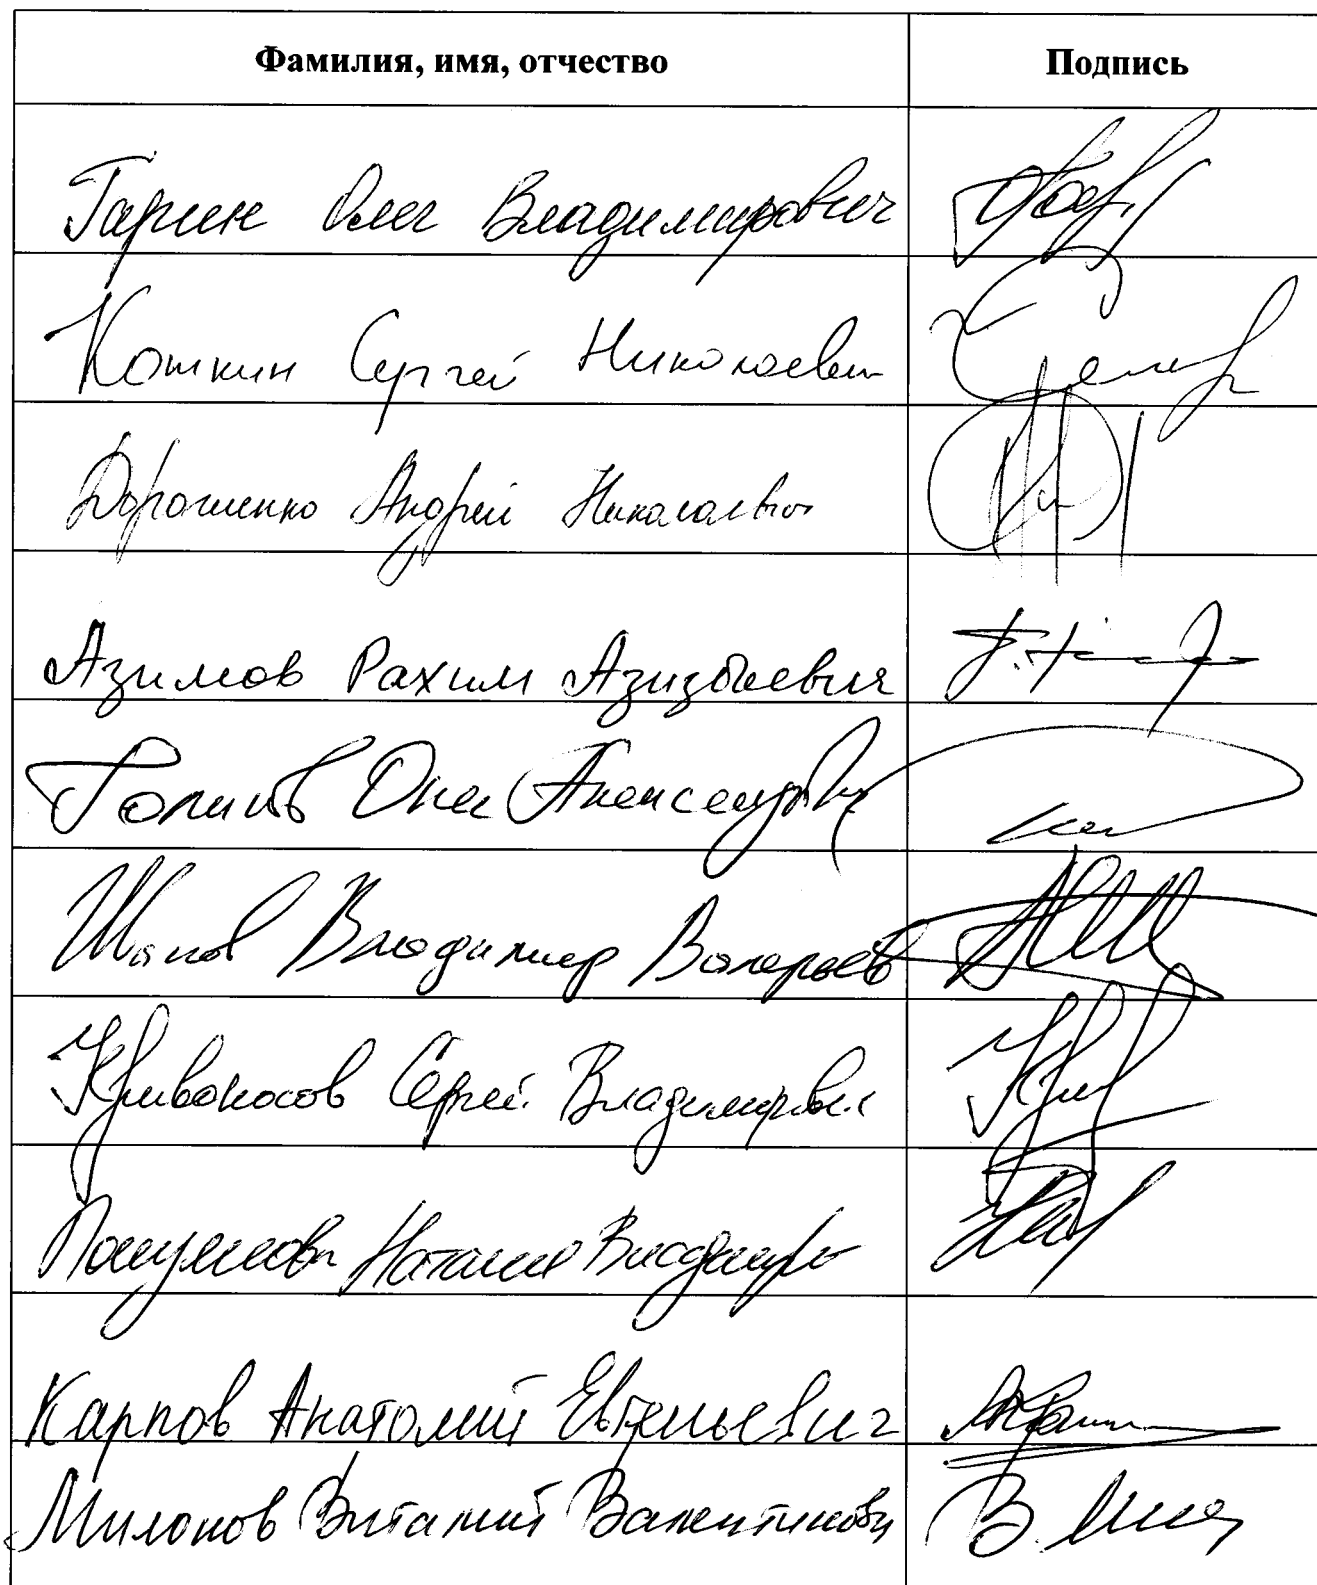 Фамилия, имя, отчество Подпись
Гарин Олег Владимирович
Кошкин Сергей Николаевич
Дорошенко Андрей Николаевич
Азимов Рахим Азизбаевич
Голиков Олег Александрович
Шапов Владимир Валерьев
Кривоносов Сергей Владимирович
Полуянова Наталия Владимиро
Карпов Анатолий Евгеньевич
Милонов Виталий Валентинович В.